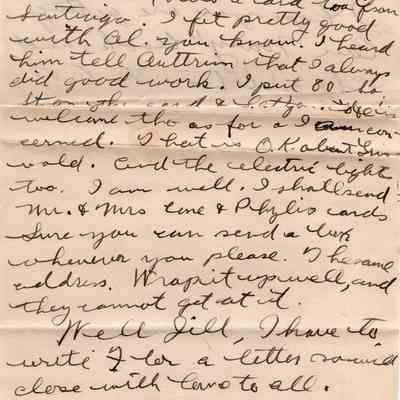 a card too from
Santiago. I fit pretty good
with Al. you know. I heard
him tell that I always
did good work. I put 80
welcome tho as for as I am con-
cerned. That is O.K. about
wald. And the electric light
too. I am well. I shall send
Mr. & Mrs & Phylis cards
Sure you can send a
whenever you please. The same
address. Wrap it up well, and
they cannot get at it.
Well Jill, I have to
write for a letter so will
close with love to all.